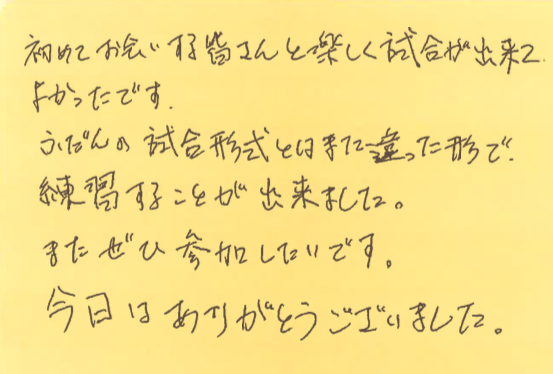 初めてお会いする皆さんと楽しく試合が出来て
よかったです.
ふだんの試合形式とはまた違った形で.
練習することが出来ました。
またぜひ参加したいです。
今日はありがとうございました。